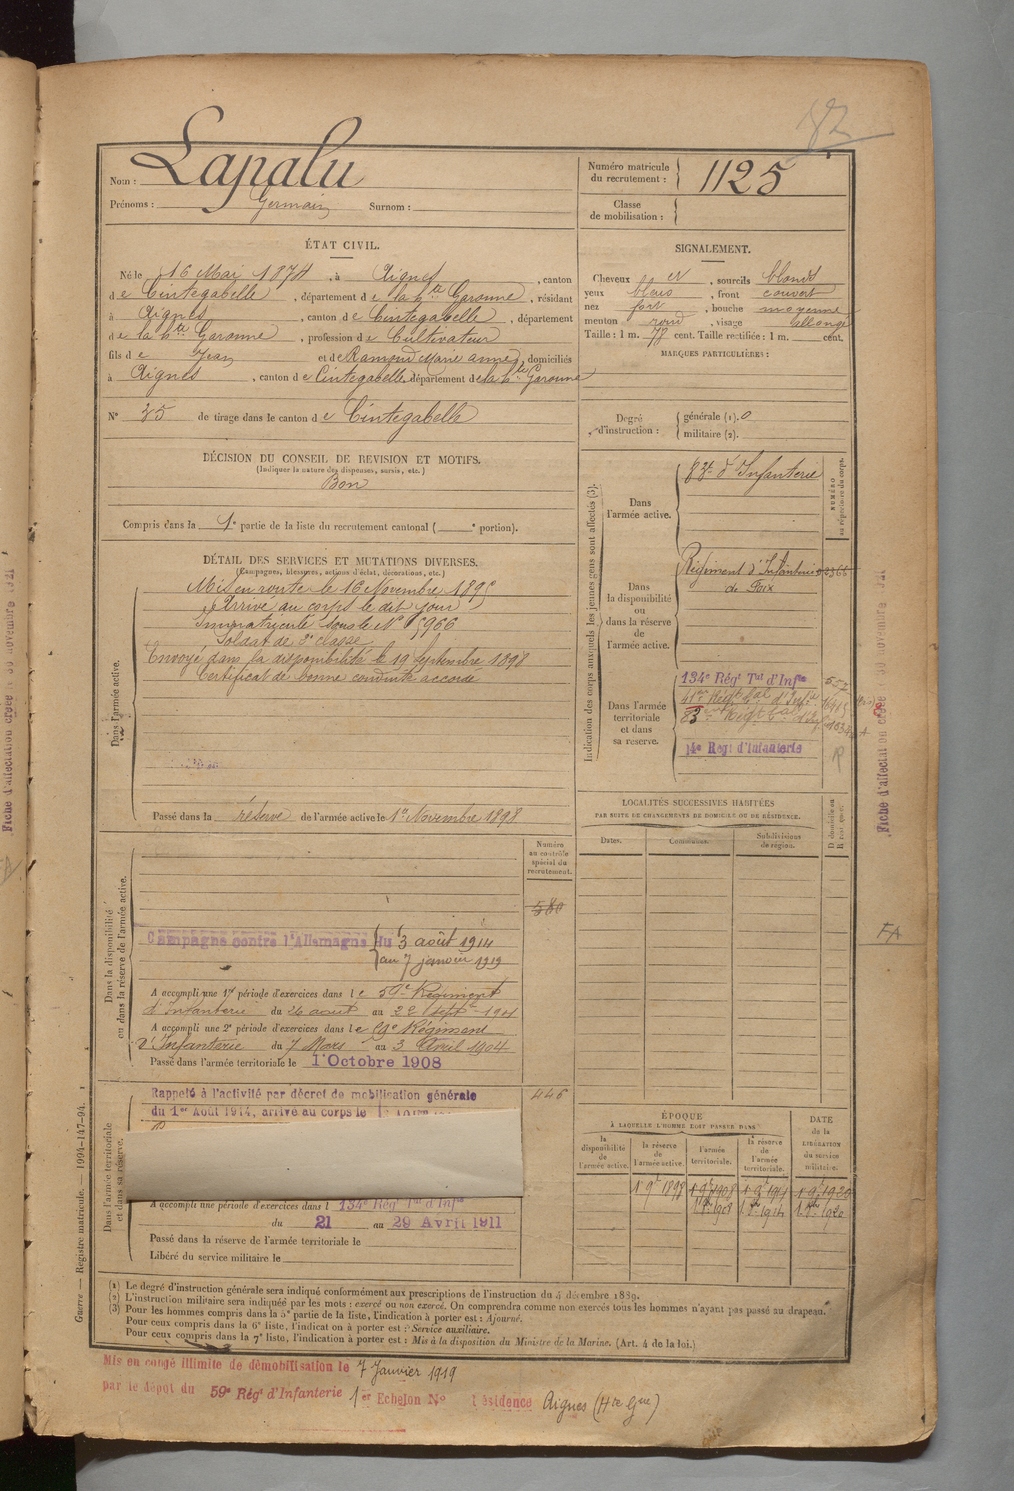 82
Nom : Lapalu
Prénoms : Germain Surnom :
Numéro matricule
du recrutement : 1125
Classe
de mobilisation :
ÉTAT CIVIL.
Né le 16 Mai 1874, à Aignes, canton
de Cintegabelle, département de la Hte Garonne, résidant
à Aignes, canton de Cintegabelle, département
de la Hte Garonne, profession de Cultivateur
fils de Jean et de Ramond Marie Anne, domiciliés
à Aignes, canton de Cintegabelle, département de la Hte Garonne
N° 35 de tirage dans le canton de Cintegabelle
DÉCISION DU CONSEIL DE REVISION ET MOTIFS.
(Indiquer la nature des dispenses, sursis, etc.)
Bon
Compris dans la 1e partie de la liste du recrutement cantonal ( e portion).
SIGNALEMENT.
Cheveux et, sourcils blonds
yeux bleus, front couvert
nez fort, bouche moyenne
menton rond, visage allongé
Taille : 1 m. 77 cent. Taille rectifiée : 1 m. cent.
MARQUES PARTICULIÈRES :
Degré
d'instruction :
générale (1). 0
militaire (2).
DÉTAIL DES SERVICES ET MUTATIONS DIVERSES.
(Campagnes, blessures, actions d'éclat, décorations, etc.)
Dans l'armée active.
Mis en route le 16 Novembre 1895
Arrivé au corps le dit jour
Immatriculé sous le N°
Soldat de 2e classe
Envoyé dans la disponibilité le 19 Septembre 1898
Certificat de bonne conduite accordé
Passé dans la réserve de l'armée active le 1er Novembre 1898
Indication des corps auxquels les jeunes gens sont affectés (3).
NUMÉRO
au répertoire du corps.
Dans
l'armée active.
d'Infanterie
Dans
la disponibilité
ou
dans la réserve
de
l'armée active.
Régiment d'Infanterie
de Foix
Dans l'armée
territoriale
et dans
sa réserve.
134e Régt Tal d'Infie
14e Régt d'Infanterie
LOCALITÉS SUCCESSIVES HABITÉES
PAR SUITE DE CHANGEMENTS DE DOMICILE OU DE RÉSIDENCE.
Dates.
Communes.
Subdivisions
de région.
D domicile ou
R résidence.
Dans la disponibilité
ou dans la réserve de l'armée active.
Numéro
au contrôle
spécial du
recrutement.
580
Campagne contre l'Allemagne du 3 août 1914
au 7 janvier 1919
A accompli une 1re période d'exercices dans le 59e Régiment
d'Infanterie du 26 août au 22 sept 1901
A accompli une 2e période d'exercices dans le 59e Régiment
d'Infanterie du 7 Mars au 3 Avril 1904
Passé dans l'armée territoriale le 1 Octobre 1908
Dans l'armée territoriale
et dans sa réserve.
446
Rappelé à l'activité par décret de mobilisation générale
du 1er Août 1914, arrivé au corps le
A accompli une période d'exercices dans l 134e Régt Tal d'Infie
du 21 au 29 Avril 1911
Passé dans la réserve de l'armée territoriale le
Libéré du service militaire le
ÉPOQUE
À LAQUELLE L'HOMME DOIT PASSER DANS
la
disponibilité
de
l'armée active.
la réserve
de
l'armée active.
l'armée
territoriale.
la réserve
de
l'armée
territoriale.
DATE
de la
LIBÉRATION
du service
militaire.
1 9e 1898
1 9e 1908
1 9e 1914
1 9e 1920
(1) Le degré d'instruction générale sera indiqué conformément aux prescriptions de l'instruction du 4 décembre 1889.
(2) L'instruction militaire sera indiquée par les mots : exercé ou non exercé. On comprendra comme non exercés tous les hommes n'ayant pas passé au drapeau.
(3) Pour les hommes compris dans la 5e partie de la liste, l'indication à porter est : Ajourné.
Pour ceux compris dans la 6e liste, l'indication à porter est : Service auxiliaire.
Pour ceux compris dans la 7e liste, l'indication à porter est : Mis à la disposition du Ministre de la Marine. (Art. 4 de la loi.)
Mis en congé illimité de démobilisation le 7 Janvier 1919
par le dépôt du 59e Régt d'Infanterie 1er Echelon N° résidence Aignes (Hte Gne)
Guerre — Registre matricule. — 1994-147-94.
FA